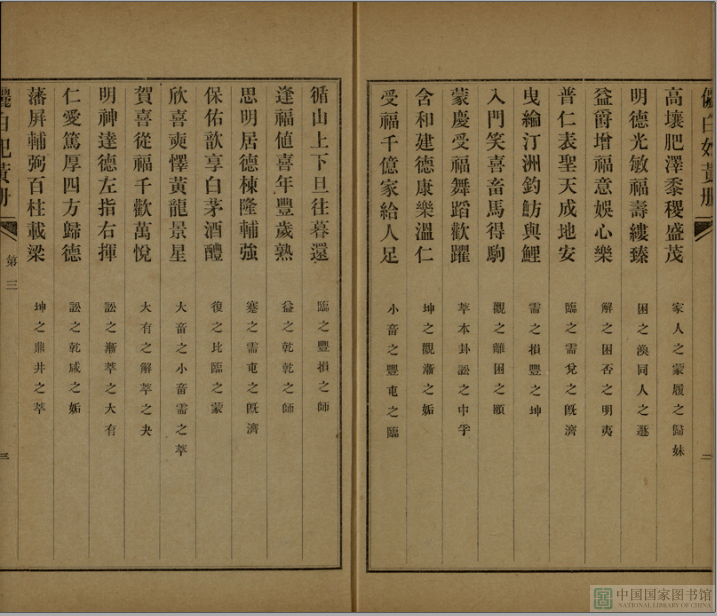 儷白妃黃冊
高壤肥澤黍稷盛茂 家人之蒙履之歸妹
明德光敏福壽縷臻 困之渙同人之遯
益爵增福意娛心樂 解之困否之明夷
普仁表聖天成地安 臨之需兌之旣濟
曳綸汀洲釣魴與鯉 需之損豐之坤
入門笑喜畜馬得駒 觀之離困之頤
蒙慶受福舞蹈歡躍 萃本卦訟之中孚
含和建德康樂溫仁 坤之觀漸之姤
受福千億家給人足 小畜之豐屯之臨
二
循山上下旦往暮還 臨之豐損之師
逢福值喜年豐歲熟 益之乾乾之師
思明居德棟隆輔強 蹇之需屯之旣濟
保佑歆享白茅酒醴 復之比臨之蒙
欣喜奭懌黃龍景星 大畜之小畜需之萃
賀喜從福千歡萬悅 大有之解萃之夬
明神達德左指右揮 訟之漸萃之大有
仁愛篤厚四方歸德 訟之乾咸之姤
藩屏輔弼百柱載梁 坤之鼎井之萃
儷白妃黃冊 第三
三
中国国家图书馆
NATIONAL LIBRARY OF CHINA